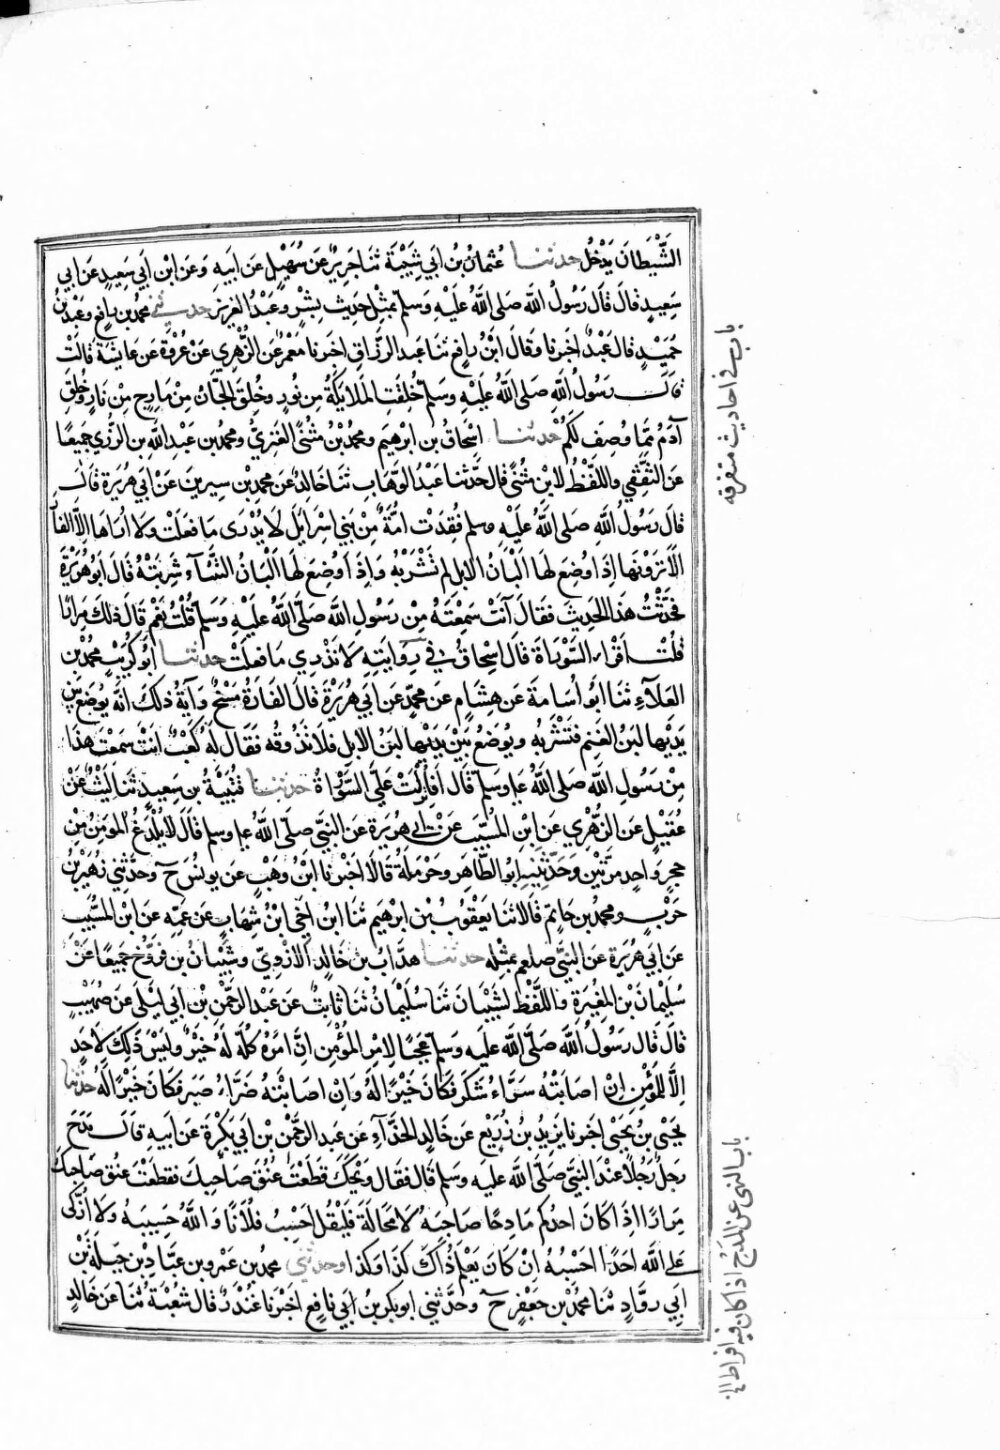 الشَّيْطَانَ يَدْخُلُ حدثنا عُثمانُ بنُ ابي شَيْبَةَ ثنا جَرِيرٌ عَن سُهَيْلٍ عَن ابيهِ وَعَن ابْنِ ابي سَعِيدٍ عَن ابي
سَعِيدٍ قالَ قالَ رَسُولُ اللّه صَلى اللّهُ عَلَيْهِ وَسَلم بمثْلِ حَدِيث بِشْرٍ وعَبْدُ العَزِيز حدثني محمد بن رافع وعَبْد بنُ
حُمَيْدٍ قال عَبدٌ اخبرنا وقالَ ابْنُ رافعٍ ثنا عبد الرزاقِ اخبرنا مَعْمَرٌ عَن الزُّهري عَنْ عُرْوَةَ عَن عايشَة قالَتْ
قالَ رَسُولُ اللّهِ صَلى اللّهُ عَلَيْهِ وسَلم خُلِقَتِ الملَايكَةُ مِن نُورٍ وخُلِقَ الجَانُّ مِن مَارِجٍ مِنْ نَارٍ وخُلِقَ
آدَمُ مِمَّا وُصِفَ لكُمْ حدثنا اسْحَاقُ بن ابرهيم ومحمدُ بْنُ مثنَّى العَنَزِيُّ ومحمدُ بن عَبْدِ اللّهِ بن الرُّزِّي جَمِيعًا
عَن الثَّقفِي واللَّفْظُ لابْنِ مُثنًّى قال حَدَّثنا عَبْدُ الوَهَّابِ ثنا خَالدٌ عَن محمد بْنِ سِيرِينَ عَنْ ابي هُرَيرَة قَالَ
قالَ رَسُولُ اللّهِ صَلى اللّهُ عَلَيْهِ وسلم فُقِدَتْ امَّةٌ مِنْ بَني اسْرَايِيلَ لا يُدْرَى مَا فَعَلتْ ولا اُرَاهَا الاَّ الفأر
الَا تَرَوْنَها إذَا وُضِعَ لهَا الْبَانُ الابِل لم تَشْرَبْهُ وَإذَا وُضِعَ لهَا الْبَانُ الشَّاءِ شَرِبَتْهُ قَالَ ابُو هُرَيْرَةَ
فحَدَّثْتُ هَذَا الحَدِيثَ فقَالَ آنْتَ سَمِعْتَهُ مِنْ رَسُولِ اللّه صَلّى اللّهُ عَلَيْهِ وَسَلم قُلْتُ نَعَمْ قَالَ ذلِكَ مِرَارًا
قلْتُ اَقْرَاء التَّوْرَاةَ قالَ اسْحَاقُ في رِوَايَتِهِ لا نَدْرِي مَا فعَلَتْ حدثنا ابُو كُرَيْبٍ محمَّدُ بن
العَلَآءِ ثنا ابُو اُسَامَةَ عَن هِشَامٍ عَن محمدٍ عَن ابي هُرَيْرَةَ قالَ الفَارَةُ مَسْخٌ وَآيَةُ ذلكَ انَّهُ يُوضَعُ بَيْنَ
يَدَيْها لبَنُ الغَنم فتَشْرَبهُ ويُوضَعُ بَيْنَ يَدَيْها لبَنُ الابِلِ فلا تَذُوقُه فقَالَ لهُ كَعْبٌ انْتَ سَمِعْتَ هَذَا
مِنْ رَسُولِ اللّه صَلّى اللّهُ عليه وَسَلّم قَالَ اَفَاُنْزِلَتْ عَلَيَّ التَّوْرَاةُ حدثنا قُتَيْبَةُ بن سَعِيدٍ ثنا ليْثٌ عَنْ
عُقَيْلٍ عَن الزُّهْرِي عَن ابْنِ المُسَيَّبِ عَنْ ابي هُرَيرَة عَن النَّبيِّ صَلّى اللّهُ عليه وسلم قَالَ لا يُلْدَغُ المُؤمِنُ مِن
حجرٍ وَاحِدٍ مَرَّتَيْنِ وحَدَّثَنِيهِ ابُو الطَّاهِرِ وحَرْمَلةُ قَالَا اخْبَرنا ابْنُ وَهْبٍ عَن يونُسَ ح وحَدَّثنِي زُهَيْرُ بْنُ
حَرْبٍ ومحمدُ بن حَاتِمٍ قَالَا ثنا يَعْقُوبُ بْنُ ابرهِيم ثنا ابْنُ اخي ابْنِ شِهَابٍ عَن عَمِّهِ عَن ابْنِ المسَيَّب
عَن ابي هُرَيْرَة عَن النَّبيِّ صلعم بمثلِه حدثنا هدَّابُ بن خَالِدٍ الازْدِيّ وشَيْبَانُ بن فَرُّوخ جَمِيعًا عَنْ
سُلَيْمَانَ بْنِ المُغِيرَةِ واللَّفْظ لشَيْبَانَ ثنا سُلَيْمَانُ ثنا ثَابتٌ عَن عَبد الرَّحْمَنِ بْنِ ابي ليْلَى عَن صُهَيْبٍ
قَالَ قالَ رَسُولُ اللّهِ صَلّى اللّهُ عَليه وَسَلم عَجَبًا لامْرِ المُؤْمِنِ انَّ امْرَهُ كُلَّهُ لَهُ خَيْرٌ وليْسَ ذَلِكَ لِاحَدٍ
الاَّ للمُؤْمِنِ انْ اصَابَتْهُ سَرَّاءُ شَكَرَ فكَانَ خَيْرًا لَهُ وَانْ اصَابَتْهُ ضَرَّاءُ صَبرَ فكَانَ خَيْرًا لَهُ حدثنا
يحيَى بن يحيَى اخبرنا يزِيدُ بن زُرَيْع عَن خَالِدٍ الحَذَّآءِ عَن عَبدِ الرَّحْمَن بن ابي بَكْرَة عَن ابِيهِ قَالَ مَدَحَ
رَجلٌ رَجُلاً عندَ النبِيِّ صَلّى اللّه عَليه وسَلم قالَ فقال وَيْحَكَ قطَعْتَ عُنُقَ صَاحِبكَ قطَعْتَ عُنقَ صَاحبكَ
مِرَارًا اذَا كَانَ احدُكم مَادِحًا صَاحِبَهُ لا مَحَالَةَ فليَقُلْ احْسِبُ فُلَانًا وَاللّهُ حَسِيبهُ وَلا اُزَكِّي
عَلى اللّه احَدًا احْسِبُهُ انْ كَانَ يَعْلمُ ذَاكَ كَذَا وَكَذَا وحدثني محمدُ بن عَمْرِو بن عَبَّادِ بْنِ جَبَلَةَ بْنِ
ابي روَّادٍ ثنا محمَّدُ بْنُ جَعْفَرٍ ح وحَدَّثنِي ابو بكرِ بنُ ابي نافِعٍ اخبَرَنا غُنْدَرٌ قالَ شُعْبَةُ ثنا عَن خَالدٍ
باب في احاديث متفرقه
باب النهي عن المدح اذا كان فيه افراط